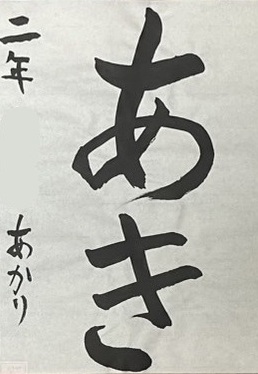 あき
二年
あかり